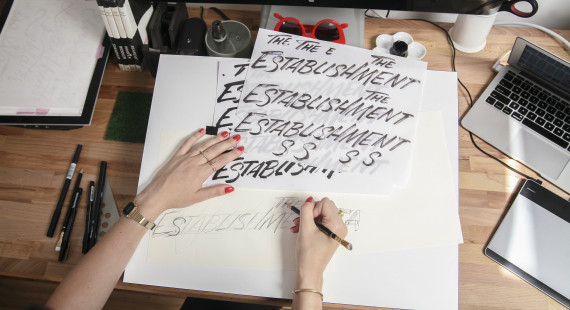 THE. THE E THE
ESTABLISHMENT
THE
ESTABLISHMENT
ESTABLISHMENT
S S S S
ESTABLISHM
THE
ESTABLISHM